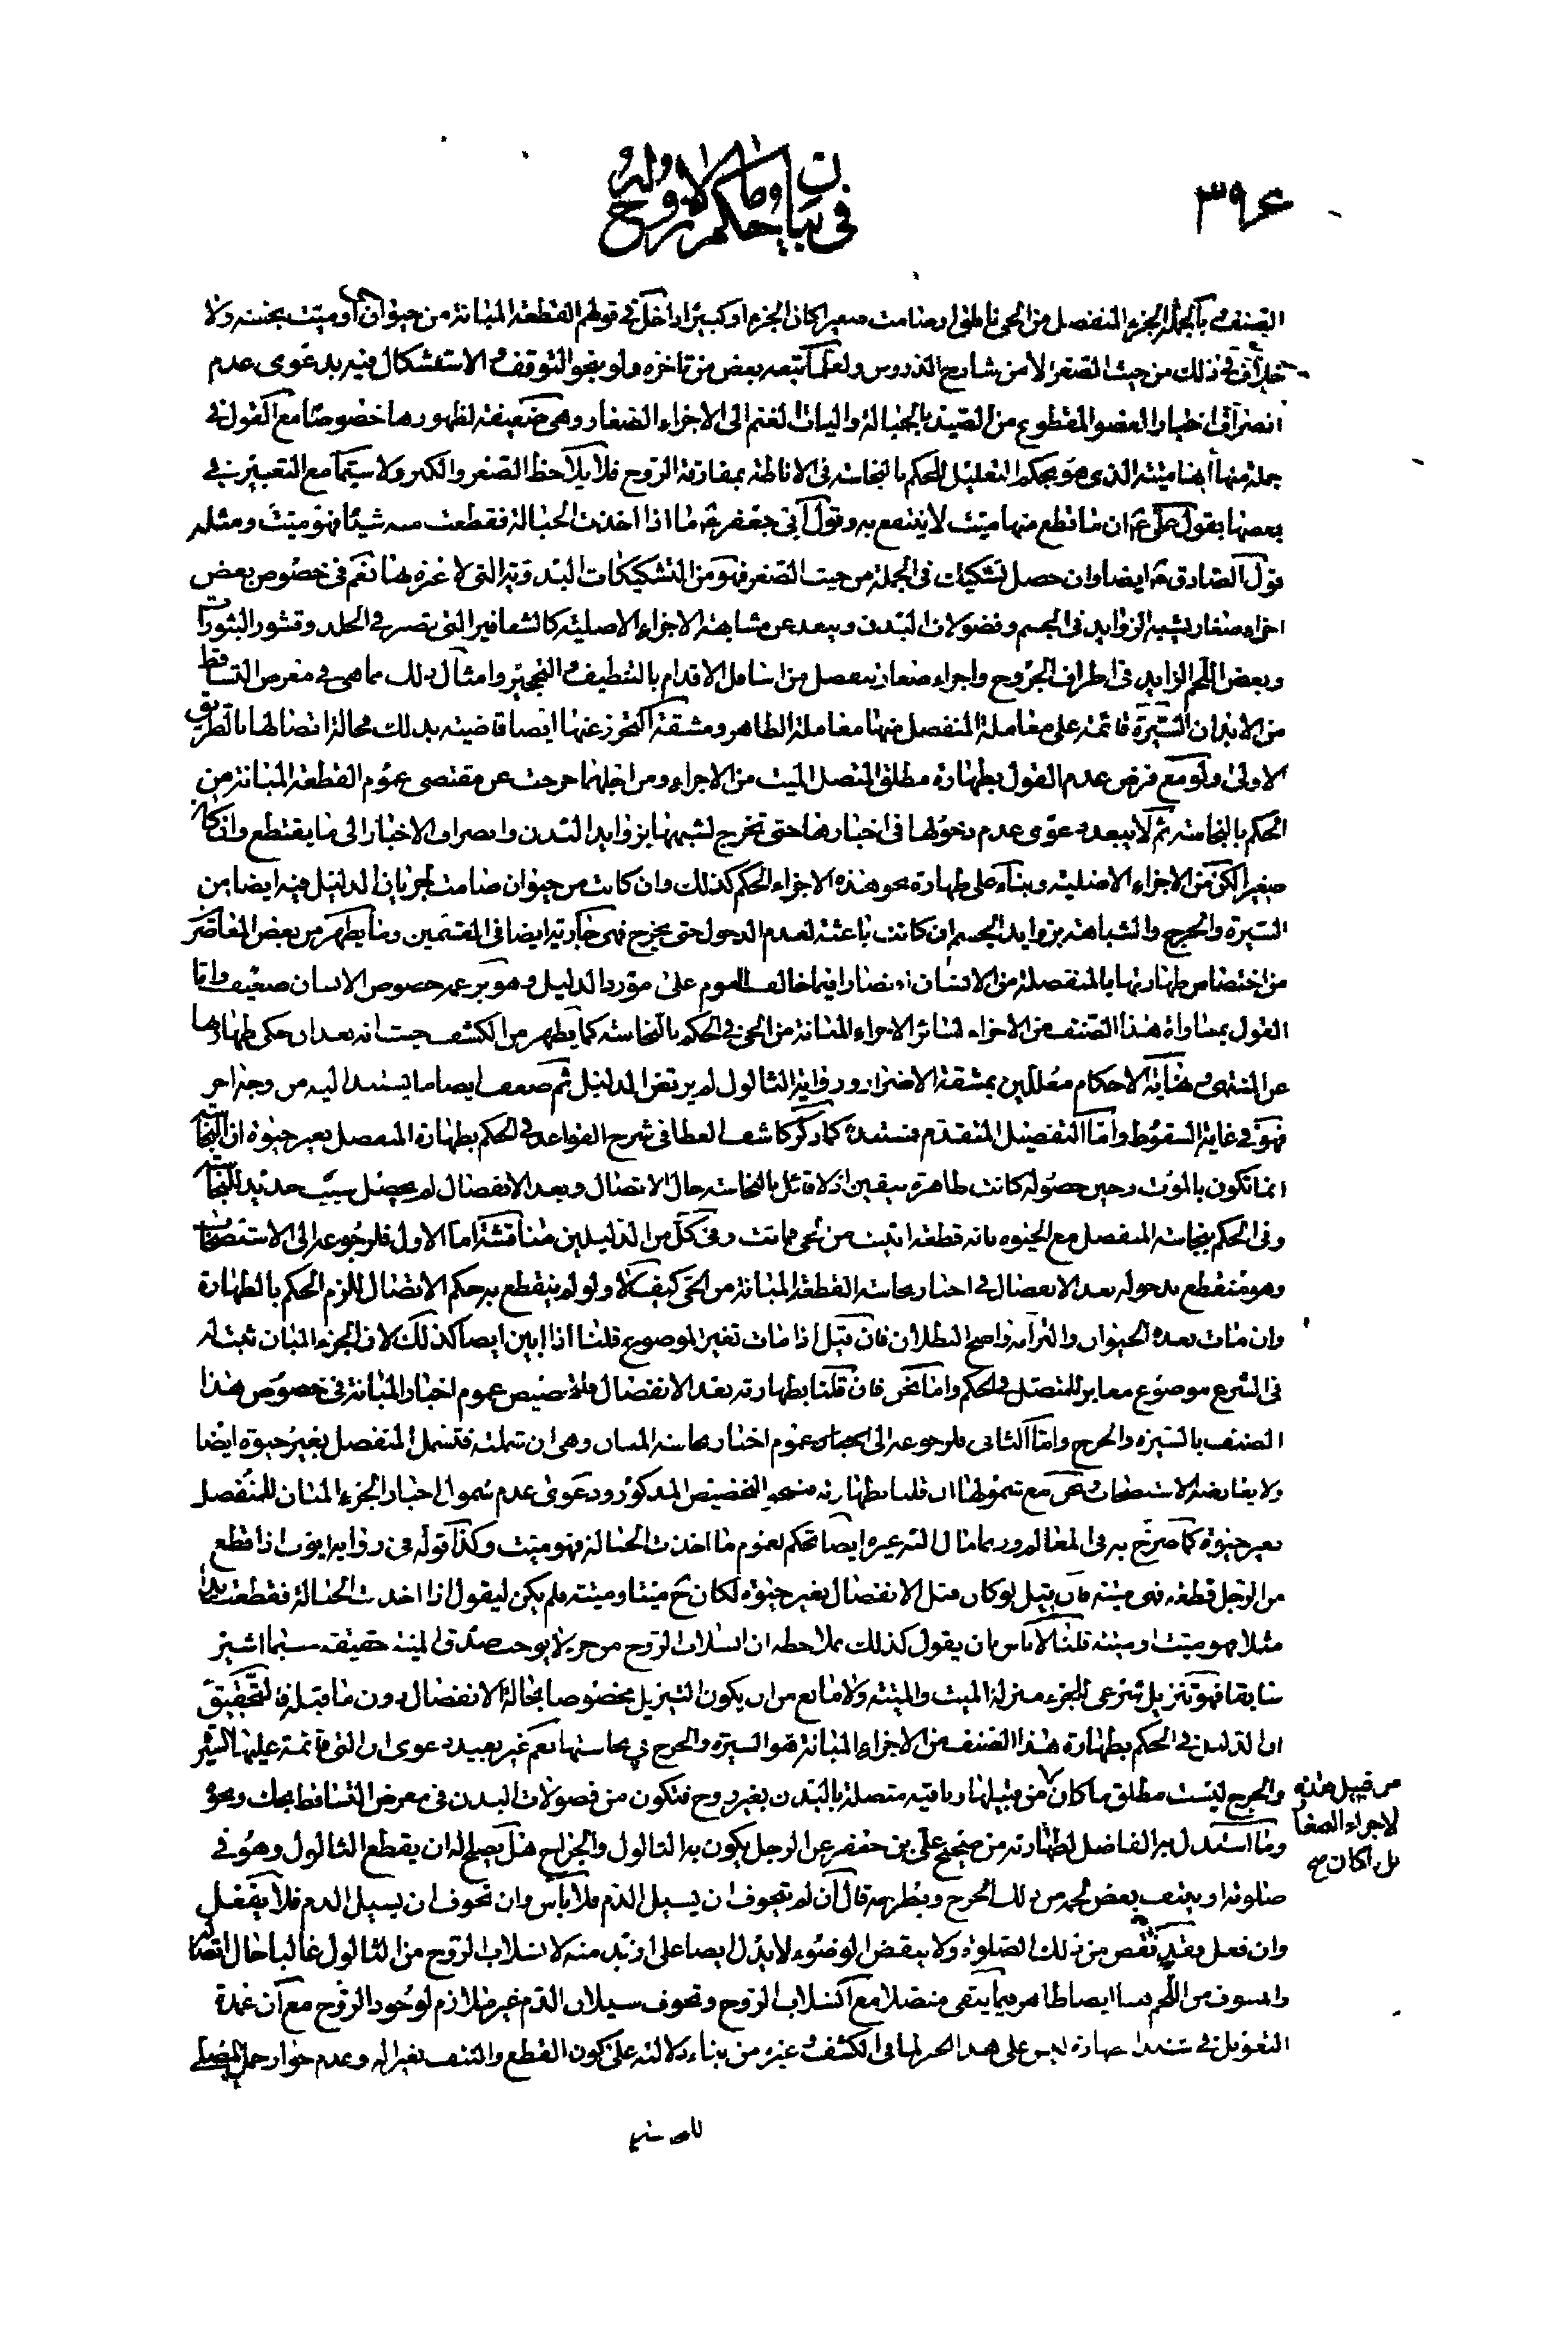 ٣٩٤
في بيان احكام ما لا روح له
التصنف وبالجملة الجزء المنفصل من الحي ناطق او صامت صغيرا كان الجزء او كبيرا داخل في قولهم القطعة المبانة من حيوان حي او ميت نجسة ولا
خلاف في ذلك من حيث الصغر الا من شارح الدروس ولعله تبعه بعض من تاخره ولو بنحو التوقف والاستشكال فيه بدعوى عدم
انصراف اخبار العضو المقطوع من الصيد بالحبالة واليات الغنم الى الاجزاء الصغار وهي ضعيفة لظهورها خصوصا مع القول في
جملة منها انها ميتة الذي هو بحكم التعليل للحكم بالنجاسة في الاناطة بمفارقة الروح فلا يلاحظ الصغر والكبر ولا سيما مع التعبير في
بعضها بقول علي ع ان ما قطع منها ميت لا ينتفع به وقول ابي جعفر ع ما اذا اخذت الحبالة فقطعت منه شيئا فهو ميت ومثله
قول الصادق ع ايضا وان حصل تشكيك في الجملة من حيث الصغر فهو من التشكيكات البدوية التي لا عبرة بها نعم في خصوص بعض
اجزاء صغار يشبه الزوايد في الجسم وفضولات البدن ويبعد عن مشابهة الاجزاء الاصلية كالشعافير التي تصير في الجلد وقشور البثورات
وبعض اللحم الزايد في اطراف الجروح واجزاء صغار تنفصل من انامل الاقدام بالتنظيف والتحجير وامثال ذلك مما هي في معرض التساقط
من الابدان السيرة قائمة على معاملة المنفصل منها معاملة الطاهر ومشقة التحرز عنها ايضا قاضية بذلك محالة اتصالها بالطريق
الاولى ولو مع فرض عدم القول بطهارة مطلق المتصل الميت من الاجزاء ومن اجلهما خرجت عن مقتضى عموم القطعة المبانة من
الحكم بالنجاسة ثم لا يبعد دعوى عدم دخولها في اخبارها حتى تخرج لشبهها بزوايد البدن وانصراف الاخبار الى ما يقتطع وان كان
صغيرا لكن من الاجزاء الاصلية وبناء على طهارة نحو هذه الاجزاء الحكم كذلك وان كانت من حيوان صامت لجريان الدليل فيه ايضا من
السيرة والحرج والشباهة بزوايد الجسم ان كانت باعثة لعدم الدخول حتى يخرج فهي جارية ايضا في القسمين وما يظهر من بعض المعاصر
من اختصاص طهارتها بالمنفصلة من الانسان اقتصارا فيما خالف العموم على مورد الدليل وهو بزعمه خصوص الانسان ضعيف واما
القول بمساواة هذا الصنف من الاجزاء لسائر الاجزاء المبانة من الحي في الحكم بالنجاسة كما يظهر من الكشف حيث انه بعد ان حكى طهارتها
عن المنتهى ونهاية الاحكام معللين بمشقة الاحتراز ورواية الثالول لم يرتض الدليل ثم ضعف ايضا ما يستند اليه من وجه اخر
فهو في غاية السقوط واما التفصيل المتقدم فمستنده كما ذكر كاشف الغطا في شرح القواعد في الحكم بطهارة المنفصل بغير حيوة ان النجاسة
انما تكون بالموت وحين حصوله كانت طاهرة بيقين اذ لا قائل بالنجاسة حال الاتصال وبعد الانفصال لم يحصل سبب جديد للنجاسة
وفي الحكم بنجاسة المنفصل مع الحيوة بانه قطعة ابينت من حي فماتت وفي كل من الدليلين مناقشة اما الاول فلرجوعه الى الاستصحاب
وهو منقطع بدخوله بعد الانفصال في اخبار نجاسة القطعة المبانة من الحي كيف لا ولو لم ينقطع به حكم الاتصال للزم الحكم بالطهارة
وان مات بعده الحيوان والتزامه واضح البطلان فان قيل اذا مات تغير الموضوع قلنا اذا ابين ايضا كذلك لان الجزء المبان ثبت له
في الشرع موضوع مغاير للمتصل في الحكم واما نحن فان قلنا بطهارته بعد الانفصال فلتخصيص عموم اخبار المبانة في خصوص هذا
الصنف بالسيرة والحرج واما الثاني فلرجوعه الى عموم اخبار نجاسة المبان وهي ان شملته فتشمل المنفصل بغير حيوة ايضا
ولا يعارضه الاستصحاب ونحن مع شمولها ان قلنا بطهارته فمن جهة التخصيص المذكور ودعوى عدم شمول اخبار الجزء المبان للمنفصل
بغير حيوة كما صرح به في المعالم وربما مال اليه غيره ايضا تحكم لعموم ما اخذت الحبالة فهو ميت وكذا قوله في رواية ايوب اذا قطع
من الرجل قطعة فهي ميتة فان قيل لو كان قبل الانفصال بغير حيوة لكان ح ميتا وميتة فلم يكن ليقول اذا اخذت الحبالة فقطعت يدا
مثلا فهو ميت او ميتة قلنا لا باس بان يقول كذلك بملاحظة ان انسلاب الروح من جزء لا يوجب صدق الميتة حقيقة سيما اشير
سابقا فهو تنزيل شرعي للجزء منزلة الميت والميتة ولا مانع من ان يكون التنزيل مخصوصا بحالة الانفصال دون ما قبله فالتحقيق
ان الدليل في الحكم بطهارة هذا الصنف من الاجزاء المبانة هو السيرة والحرج في نجاستها نعم غير بعيد دعوى ان التي قائمة عليها السيرة
والحرج ليست مطلق ما كان من قبيلها وباقية متصلة بالبدن بغير روح فتكون من فضولات البدن في معرض التساقط بحك ونحوه
من قبيل هذه
الاجزاء الصغار
بل ما كان صح
وما استدل به الفاضل لطهارته من صحيح علي بن جعفر عن الرجل يكون به الثالول والجراح هل يصلح له ان يقطع الثالول وهو في
صلوته او ينتف بعض لحمه من ذلك الجرح ويطرحه قال ان لم يتخوف ان يسيل الدم فلا باس وان تخوف ان يسيل الدم فلا يفعل
وان فعل فقد نقص من ذلك الصلوة ولا ينقض الوضوء لا يدل ايضا على ازيد منه لانسلاب الروح من الثالول غالبا حال اتصاله
والمنتوف من اللحم ايضا ظاهر فيما يبقى متصلا مع انسلاب الروح وتخوف سيلان الدم غير ملازم لوجود الروح مع ان عمدة
التعويل في ليس على هذا الخبر لما في الكشف وغيره من بناء دلالته على كون القطع والنتف بغير اله وعدم جواز حمل المصلي